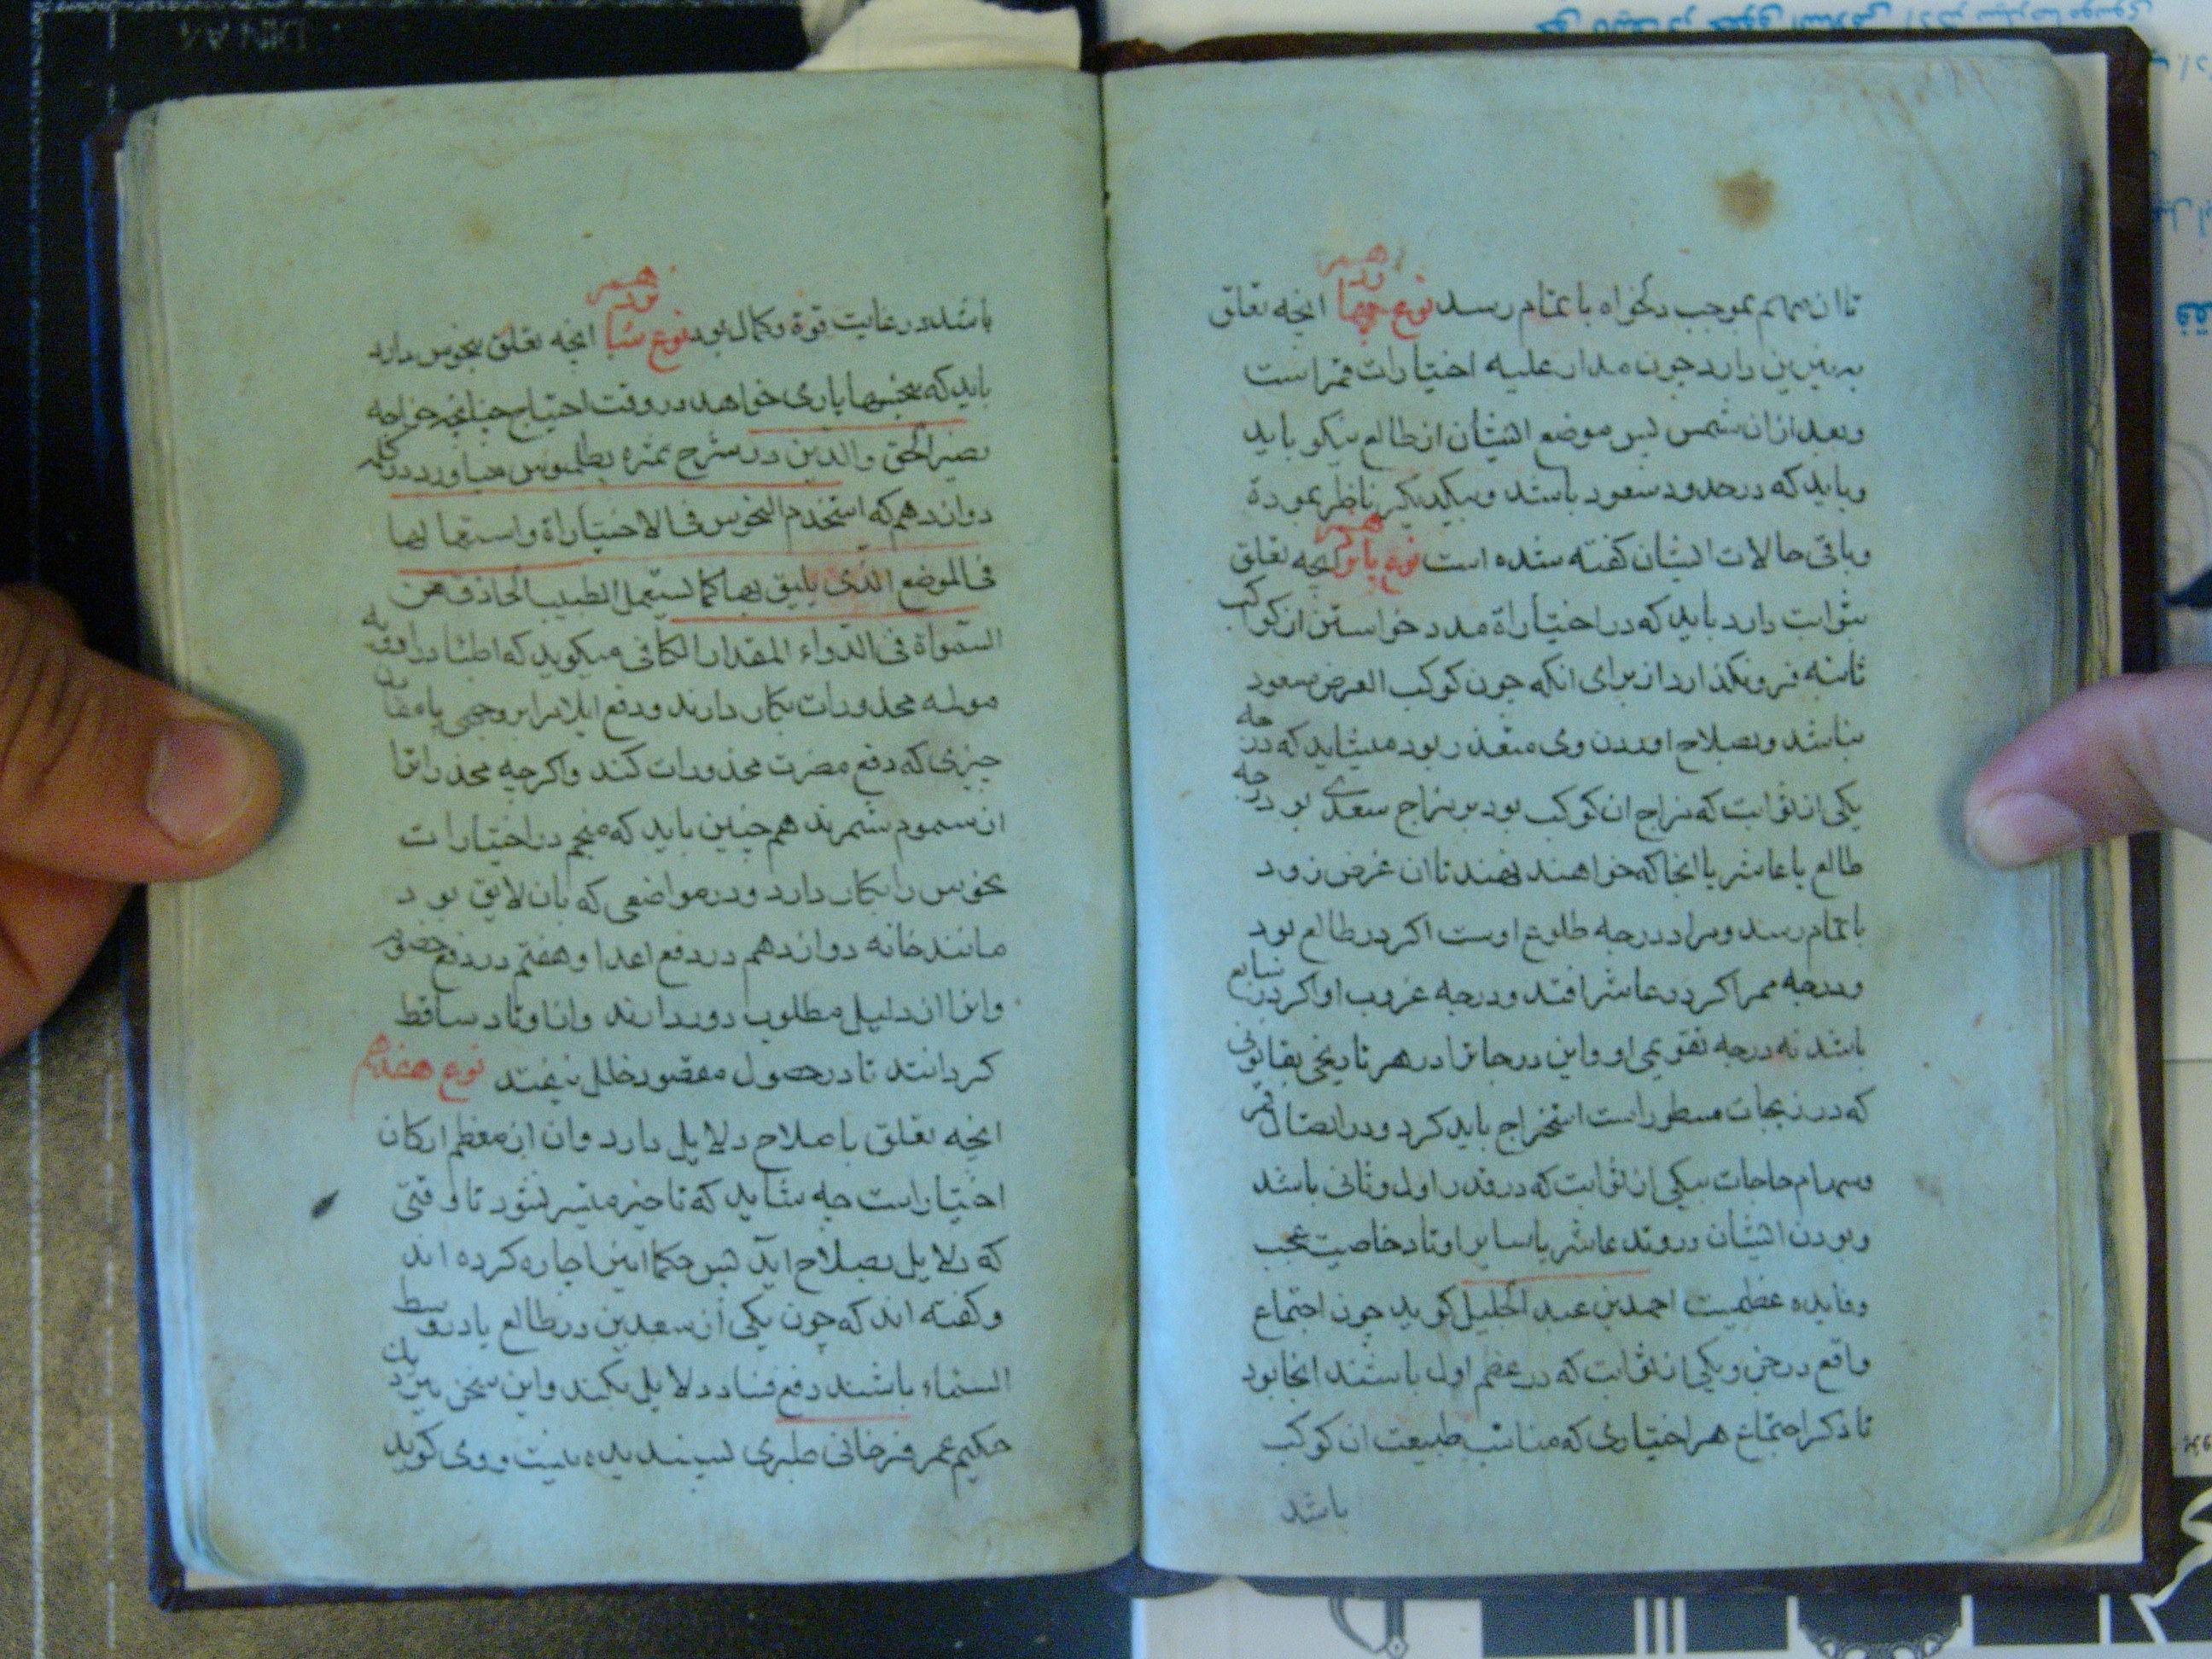 تا ان مهام بموجب دلخواه باتمام رسد نوع چهاردهم انچه تعلق
به نیرین دارد چون مدار علیه اختیارات قمر است
وبعد ازان شمس پس موضع ایشان از طالع نیکو باید
وباید که در حدود سعود باشند وبیکدیکر ناظر بمودة
وباقی حالات ایشان کفته شده است نوع پانزدهم انچه تعلق
بثوابت دارد باید که در اختیاراة مدد خواستن از کواکب
ثابته فرونکذارد از برای انکه چون کوکب الغرض سعود
نباشد وبصلاح اوردن وی متعذر بود میشاید که درجه
یکی از ثوابت که مزاج ان کوکب بود بر مزاج سعدی بر درجه
طالع یا عاشر یا انجا که خواهند نهند تا ان غرض زود
باتمام رسد ومراد درجه طلوع اوست اکر در طالع بود
ودرجه ممر اکر در عاشر افتد ودرجه غروب او اکر در سابع
باشد نه درجه تقویمی او واین درجاترا در هر تاریخی بقانونی
که در زیجات مسطور است استخراج باید کرد ودر اتصال قمر
وسهام حاجات بیکی از ثوابت که در قدر اول وثانی باشد
وبودن ایشان در وتد عاشر یا سایر اوتاد خاصیت عجب
وفایده عظیمست احمد بن عبد الجلیل کوید چون اجتماع
واقع در جزوی یکی از ثوابت که در عظم اول باشند انجا بود
تا ذکر اجتماع هر اختیاری که مناسب طبیعت ان کوکب
باشد
باشد در غایت قوة وکمال بود نوع شانزدهم انچه تعلق بنحوس دارد
باید که بنحسها یاری خواهد در وقت احتیاج چنانچه خواجه
نصیر الحق والدین در شرح ثمره بطلمیوس میاورد در کلمه
دوازدهم که استخدم النحوس فی الاختیاراة واستعمالها
فی الموضع الذی یلیق بها کما یستعمل الطبیب الحاذق من
السمواة فی الدواء المقدار الکافی میکوید که اطبا در ادویه
مولمه مخدورات بکار دارند ودفع ایلام را بر وجهی یا مقارن
چیزی که دفع مضرت مخدورات کند واکرچه مخدراترا
از سموم شمرند هم چنین باید که منجم در اختیارات
نحوس را بکار دارد ودر مواضعی که بان لایق بود
مانند خانه دوازدهم در دفع اعدا وهفتم در دفع خصوم
وانرا از دلیل مطلوب دور دارند واز اوتاد ساقط
کردانند تا در حصول مقصود خلل نیفتد نوع هفدهم
انچه تعلق باصلاح دلایل دارد وان از معظم ارکان
اختیار است چه شاید که تاخیر میسر نشود تا وقتی
که دلایل بصلاح اید پس حکما اینرا اجازه کرده اند
وکفته اند که چون یکی از سعدین در طالع یا در وسط
السماء باشند دفع فساد دلایل بکند واین سخن نزدیک
حکیم عمر فرخانی طبری پسندیده نیست ووی کوید